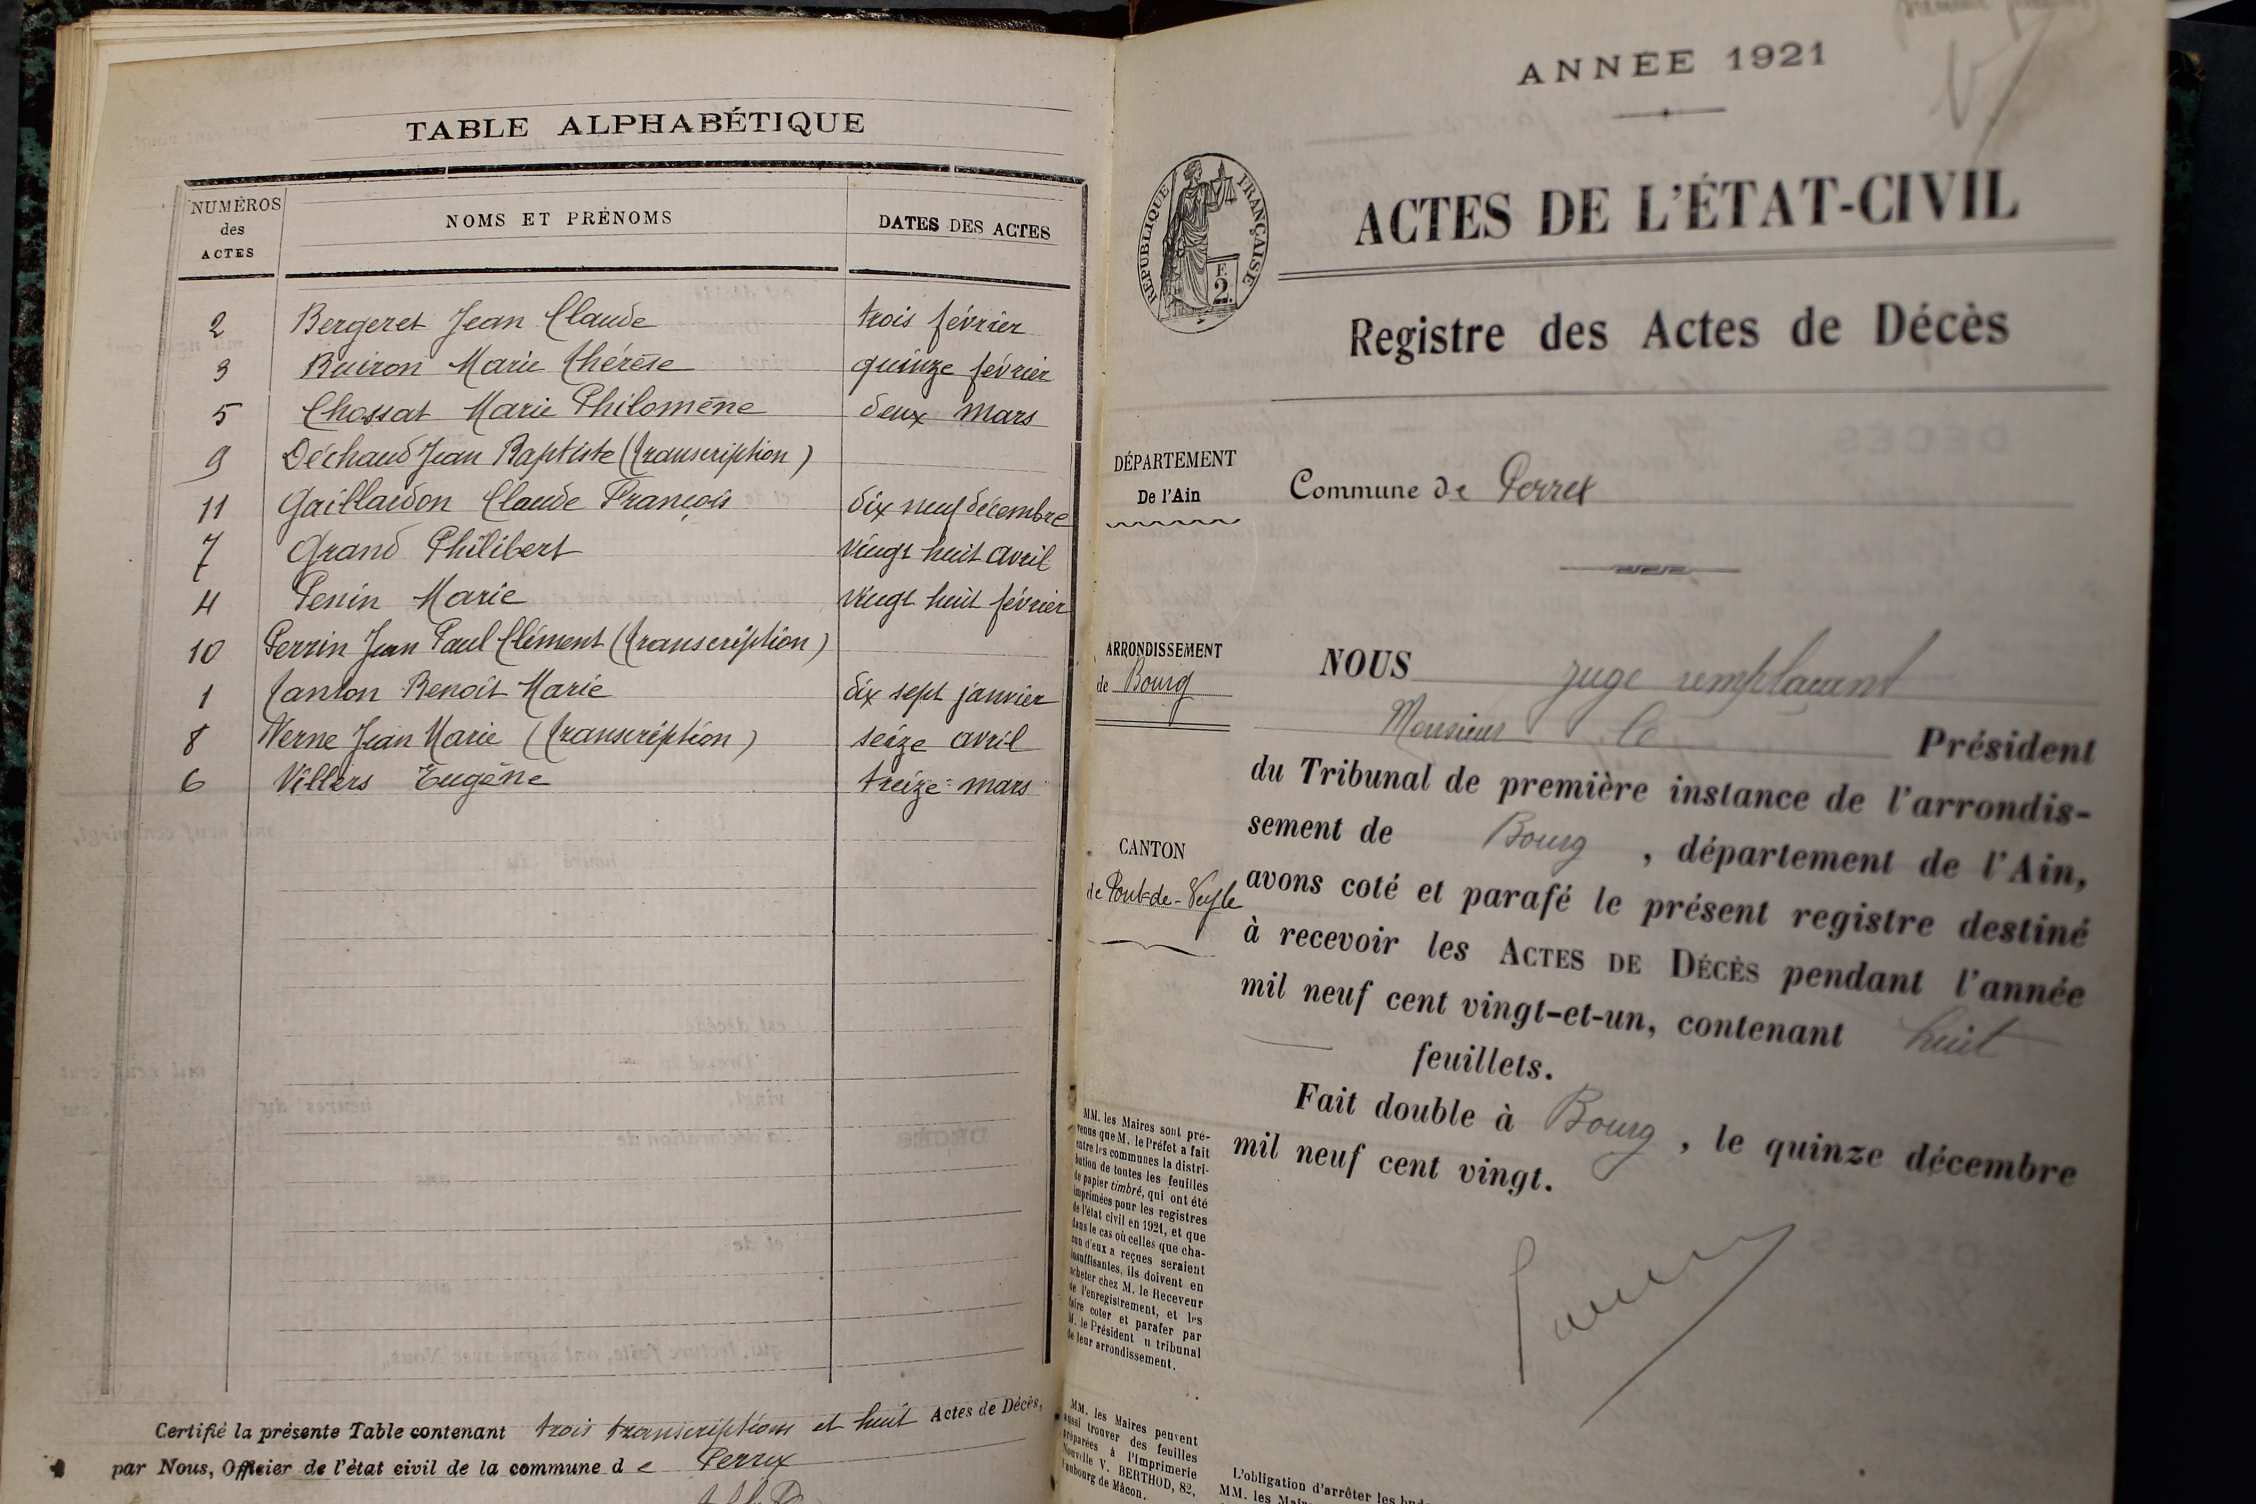 TABLE ALPHABÉTIQUE
NUMÉROS des ACTES NOMS ET PRÉNOMS DATES DES ACTES
2 Bergeret Jean Claude trois février
3 Buiron Marie Thérèse quinze février
5 Chossat Marie Philomène deux mars
9 Déchaud Jean Baptiste (transcription)
11 Gaillardon Claude François dix neuf décembre
7 Grand Philibert vingt huit avril
4 Penin Marie vingt huit février
10 Perrin Jean Paul Clément (transcription)
1 Tanton Benoît Marie dix sept janvier
8 Verne Jean Marie (transcription) seize avril
6 Villers Eugène treize mars
Certifié la présente Table contenant trois transcriptions et huit Actes de Décès,
par Nous, Officier de l'état civil de la commune de Perrex
ANNÉE 1921
RÉPUBLIQUE FRANÇAISE
F.
2.
ACTES DE L'ÉTAT-CIVIL
Registre des Actes de Décès
DÉPARTEMENT
De l'Ain
Commune de Perrex
ARRONDISSEMENT
de Bourg
NOUS juge remplaçant
Monsieur le Président
du Tribunal de première instance de l'arrondis-
sement de Bourg, département de l'Ain,
CANTON
de Pont-de-Veyle
avons coté et parafé le présent registre destiné
à recevoir les ACTES DE DÉCÈS pendant l'année
mil neuf cent vingt-et-un, contenant huit
feuillets.
Fait double à Bourg, le quinze décembre
mil neuf cent vingt.
MM. les Maires sont pré-
venus que M. le Préfet a fait
entre les communes la distri-
bution de toutes les feuilles
de papier timbré, qui ont été
imprimées pour les registres
de l'état civil en 1921, et que
dans le cas où celles que cha-
cun d'eux a reçues seraient
insuffisantes, ils doivent en
acheter chez M. le Receveur
de l'enregistrement, et les
faire coter et parafer par
M. le Président u tribunal
de leur arrondissement.
MM. les Maires peuvent
aussi trouver des feuilles
préparées à l'Imprimerie
Nouvelle V. BERTHOD, 82,
faubourg de Mâcon.
L'obligation d'arrêter les
MM. les